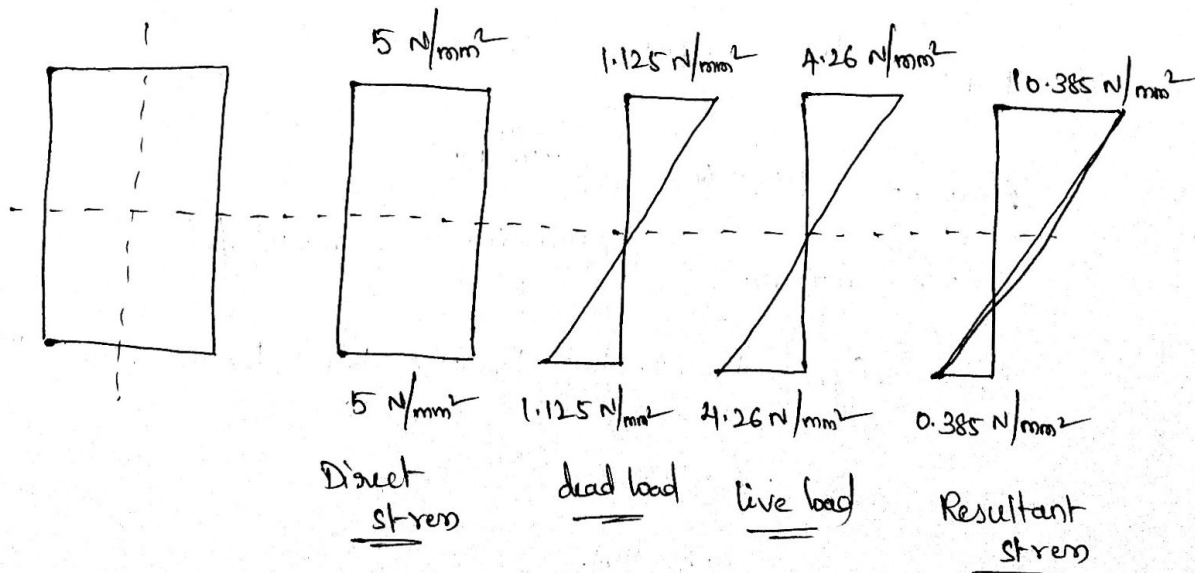 5 N/mm²
1.125 N/mm²
4.26 N/mm²
10.385 N/mm²
5 N/mm²
1.125 N/mm²
4.26 N/mm²
0.385 N/mm²
Direct
stress
dead load
live load
Resultant
stress